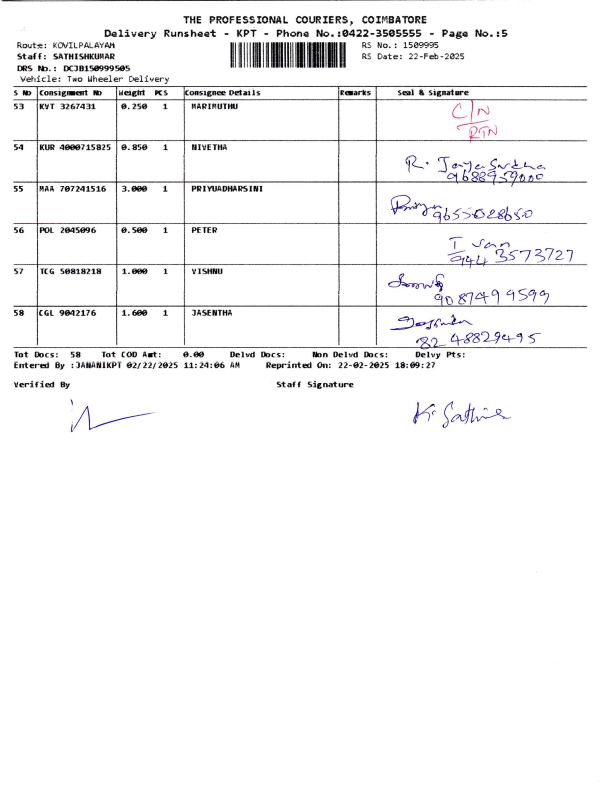 THE PROFESSIONAL COURIERS, COIMBATORE
Delivery Runsheet - KPT - Phone No.:0422-3505555 - Page No.:5
Route: KOVILPALAYAM RS No.: 1509995
Staff: SATHISHKUMAR RS Date: 22-Feb-2025
DRS No.: DCJB150999505
Vehicle: Two Wheeler Delivery
S No Consignment No Weight PCS Consignee Details Remarks Seal & Signature
53 KVT 3267431 0.250 1 MARIMUTHU C/N
RTN
54 KUR 4000715825 0.850 1 NIVETHA
R. Jayasudha
9688959000
55 MAA 707241516 3.000 1 PRIYUADHARSINI
Priya 9655028650
56 POL 2045096 0.500 1 PETER
9443573727
57 TCG 50818218 1.000 1 VISHNU
9087499599
58 CGL 9042176 1.600 1 JASENTHA
8248829495
Tot Docs: 58 Tot COD Amt: 0.00 Delvd Docs: Non Delvd Docs: Delvy Pts:
Entered By :JANANIKPT 02/22/2025 11:24:06 AM Reprinted On: 22-02-2025 18:09:27
Verified By Staff Signature
K. Sathis